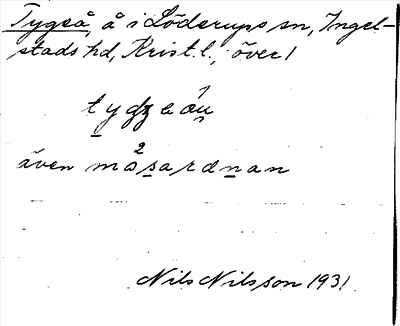 Tygeå, å i Löderups sn, Ingel-
stads hd, Krist. l.; över l
även måsardnan
Nils Nilsson 1931